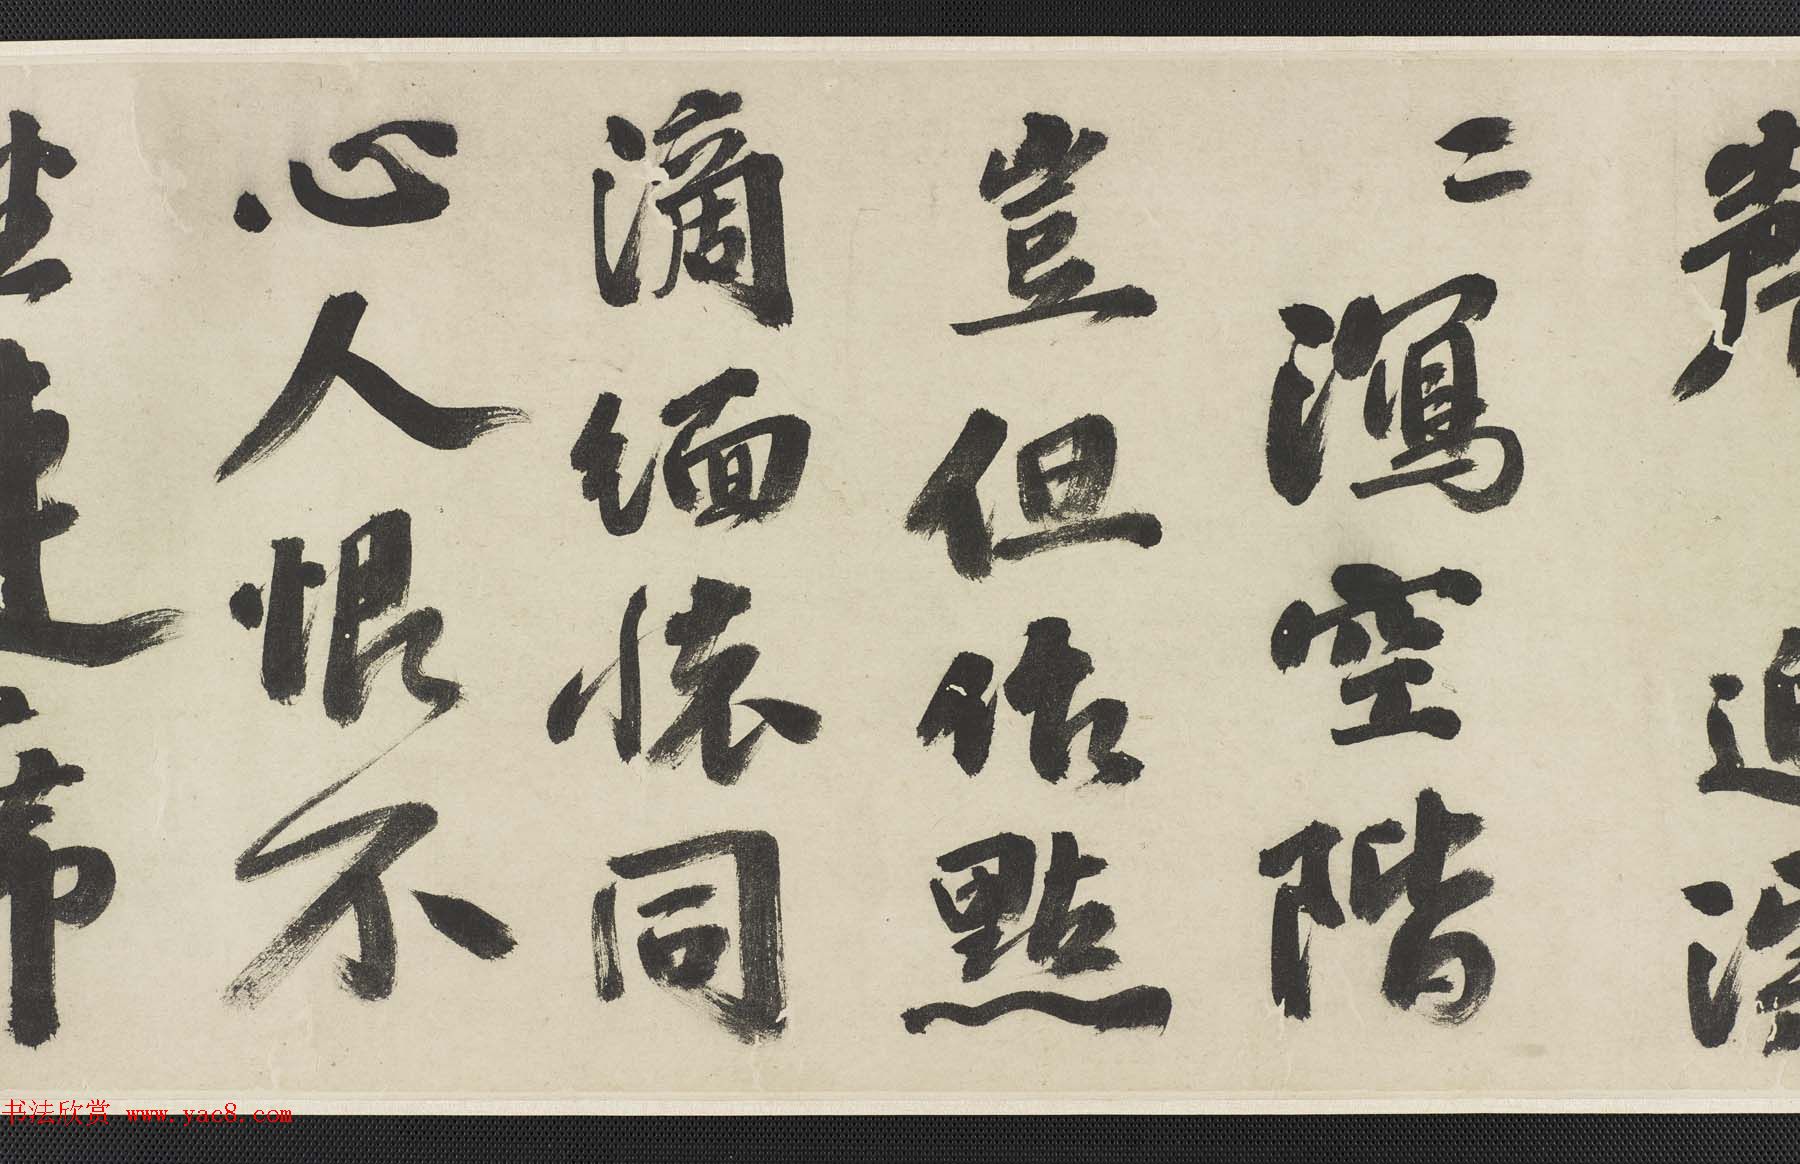 二瀉空階
豈但佔點
滴緬懷同
心人恨不
坐連席
书法欣赏 www.yac8.com